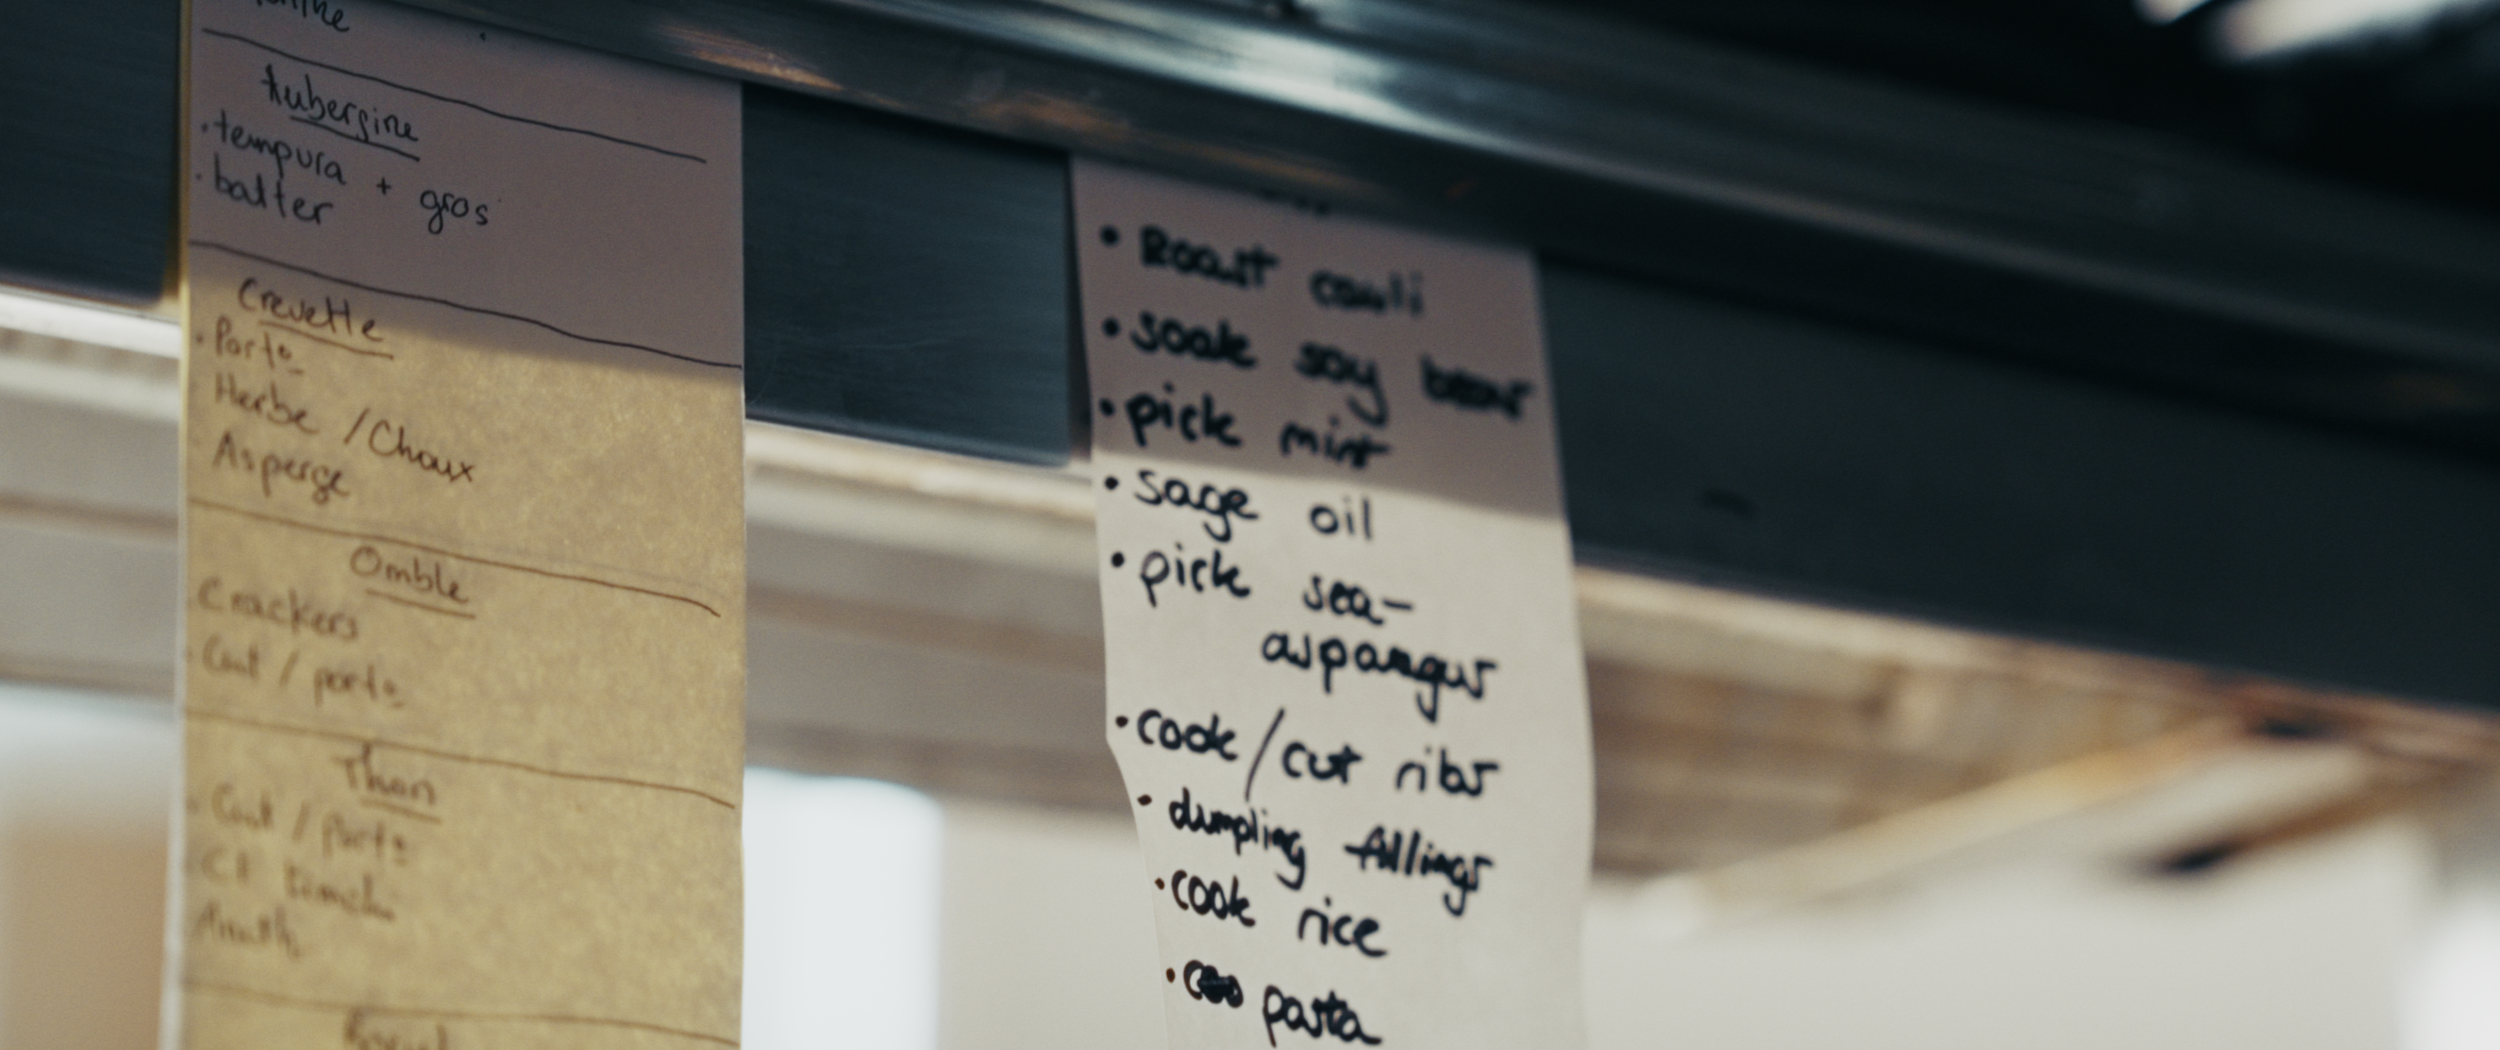 Aubergine
· tempura + gros
· batter
Crevette
· Porto
Herbe / Choux
Asperge
Omble
Crackers
Cut / porto
Thon
· Cut / porto
• Roast cauli
• soak soy beans
• pick mint
• sage oil
• pick sea-
asparagus
• cook / cut ribs
• dumpling fillings
• cook rice
• pasta